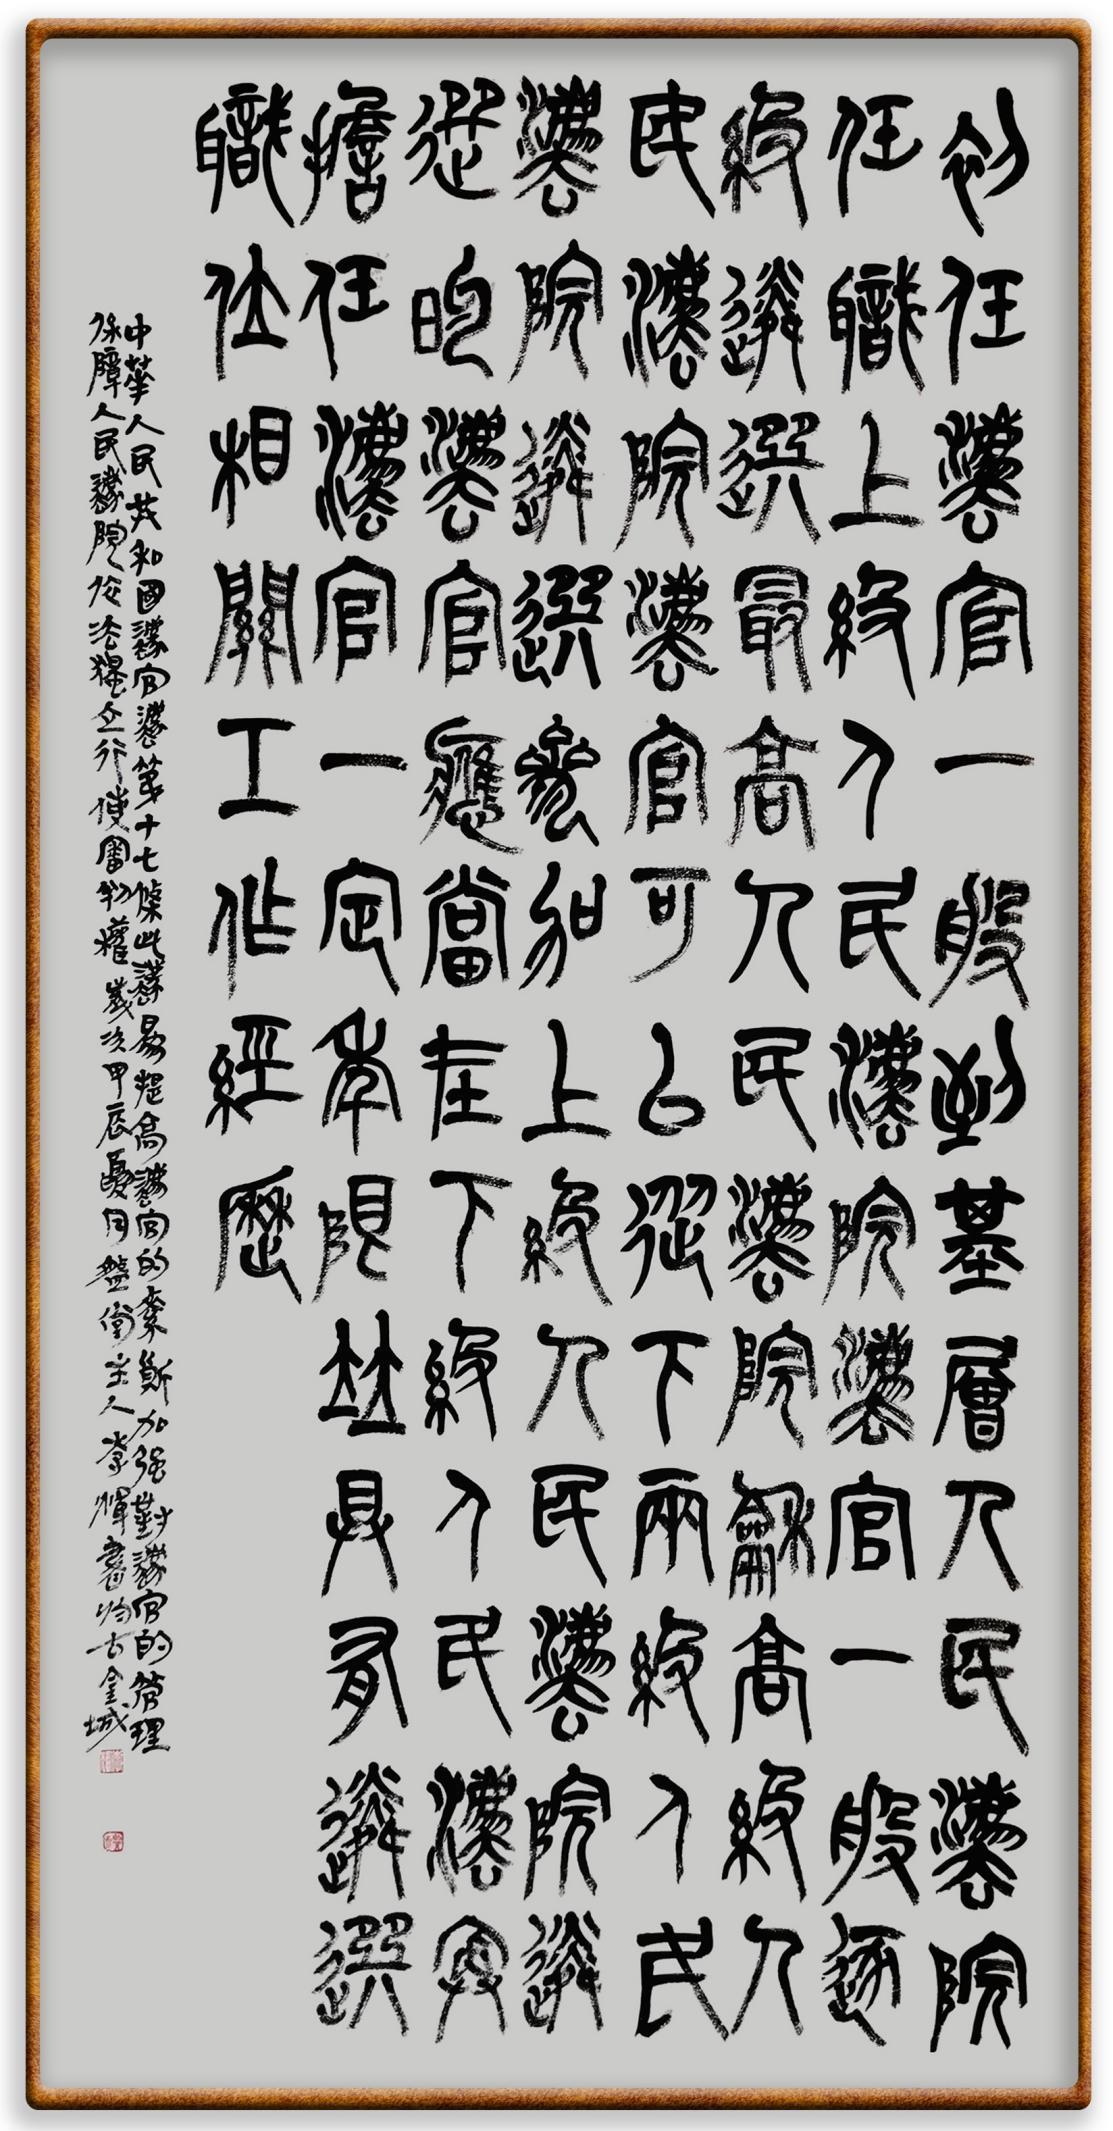 初任灋官一般到基層人民灋院
任職上級人民灋院灋官一般逐
級遴選最高人民灋院龢高級人
民灋院灋官可㠯選下兩級人民
灋院遴選參加上級人民灋院遴
選的灋官應當在下級人民灋院
擔任灋官一定年限竝具有遴選
職位相關工作經歷
中華人民共和國灋官灋第十七條此灋易提高灋官的素斯加强對灋官的管理
保障人民灋院依灋獨立行使審判權歲次甲辰夏月盤齋主人李輝書於古金城